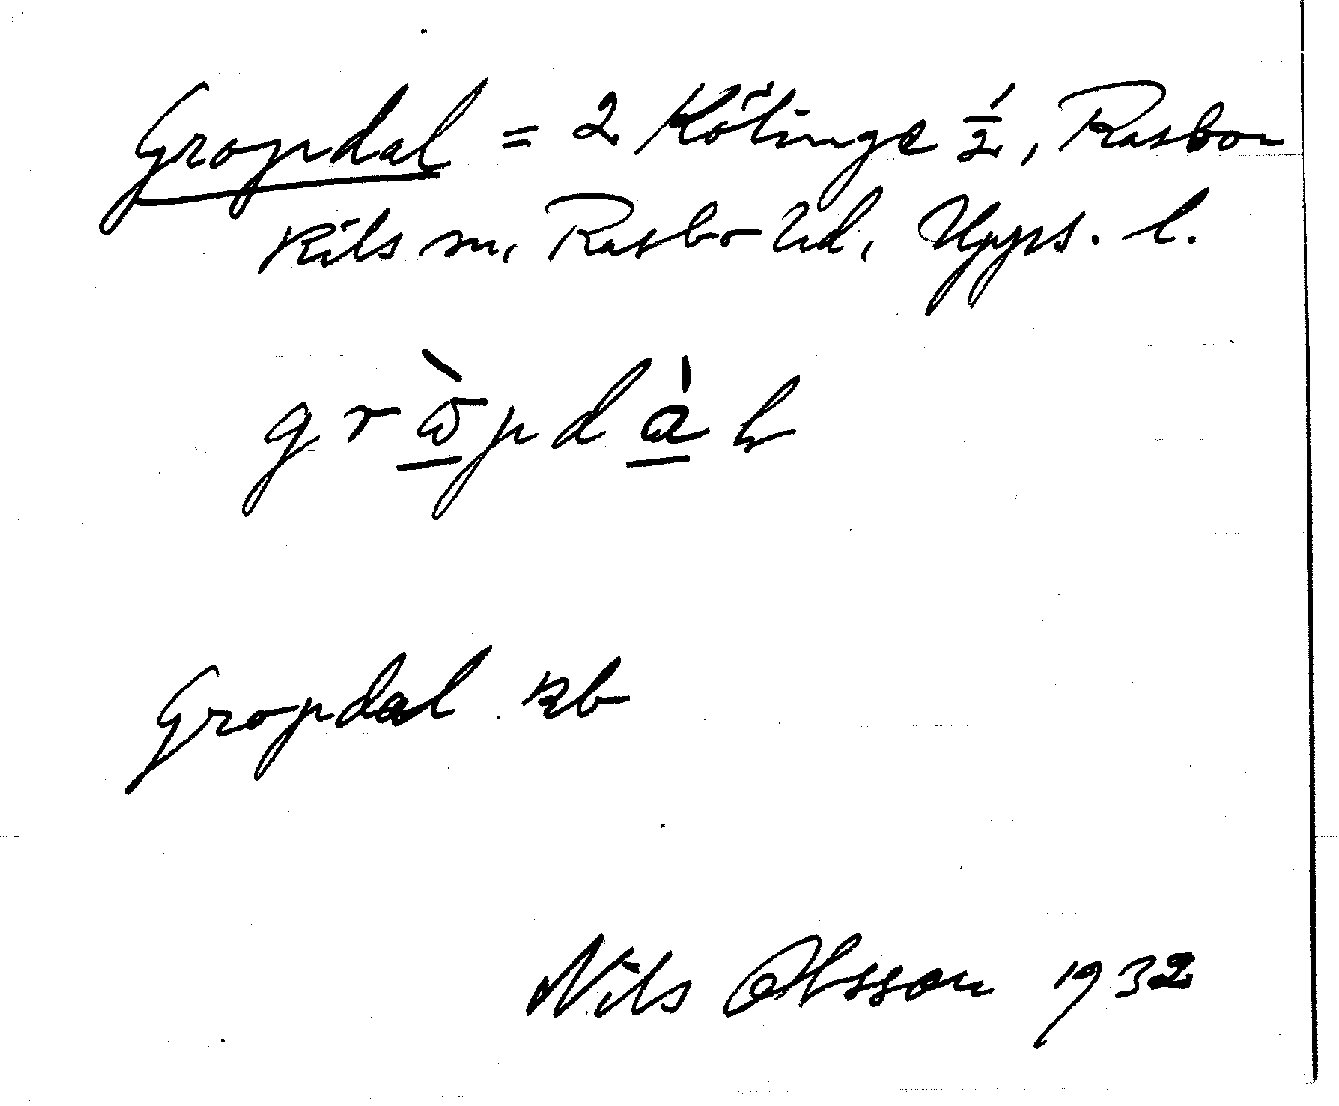 Gropdal = 2 Kölinge ½, Rasbo-
kils sn, Rasbo hd, Upps. l.
grɷ̀pdál
Gropdal kb
Nils Olsson 1932